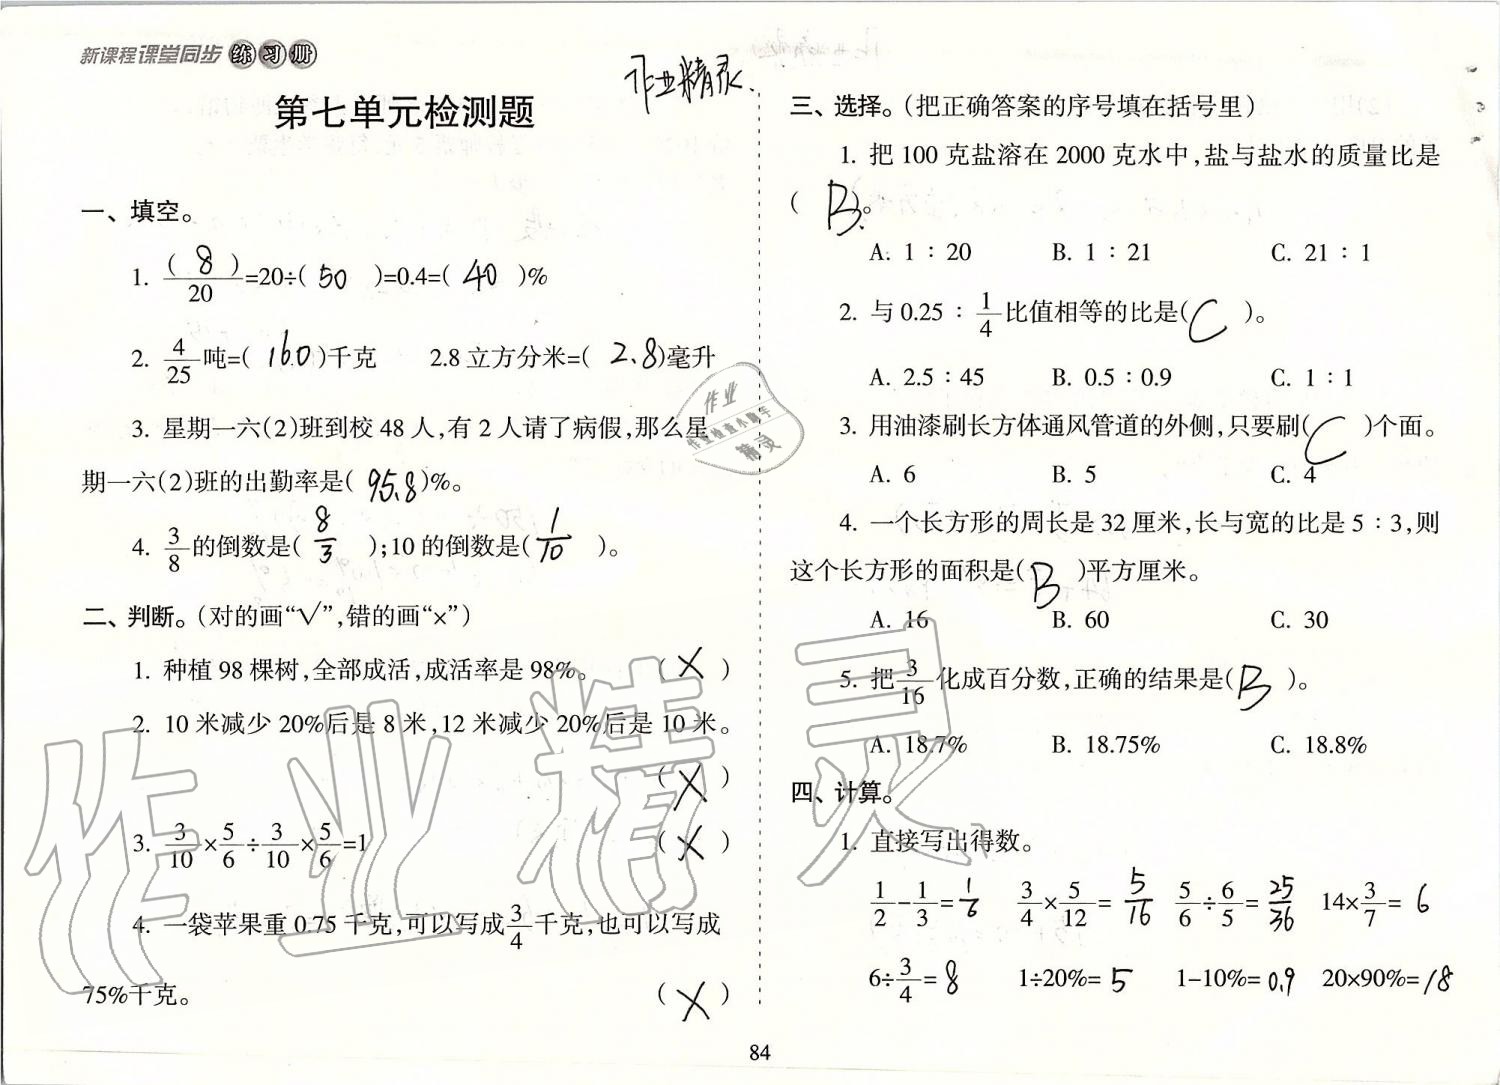 新课程课堂同步练习册
作业精灵.
第七单元检测题
一、填空。
1. (8)/20=20÷(50)=0.4=(40)%
2. 4/25吨=(160)千克 2.8立方分米=(2.8)毫升
3. 星期一六(2)班到校48人,有2人请了病假,那么星
期一六(2)班的出勤率是(95.8)%。
4. 3/8的倒数是(8/3);10的倒数是(1/10)。
二、判断。(对的画“√”,错的画“×”)
1. 种植98棵树,全部成活,成活率是98%。 (×)
2. 10米减少20%后是8米,12米减少20%后是10米。
(×)
3. 3/10×5/6÷3/10×5/6=1 (×)
4. 一袋苹果重0.75千克,可以写成3/4千克,也可以写成
75%千克。 (×)
三、选择。(把正确答案的序号填在括号里)
1. 把100克盐溶在2000克水中,盐与盐水的质量比是
(B)。
A. 1∶20 B. 1∶21 C. 21∶1
2. 与0.25∶1/4比值相等的比是(C)。
A. 2.5∶45 B. 0.5∶0.9 C. 1∶1
3. 用油漆刷长方体通风管道的外侧,只要刷(C)个面。
A. 6 B. 5 C. 4
4. 一个长方形的周长是32厘米,长与宽的比是5∶3,则
这个长方形的面积是(B)平方厘米。
A. 16 B. 60 C. 30
5. 把3/16化成百分数,正确的结果是(B)。
A. 18.7% B. 18.75% C. 18.8%
四、计算。
1. 直接写出得数。
1/2-1/3=1/6 3/4×5/12=5/16 5/6÷6/5=25/36 14×3/7=6
6÷3/4=8 1÷20%=5 1-10%=0.9 20×90%=18
84
作业
作业检查小助手
精灵
作业精灵